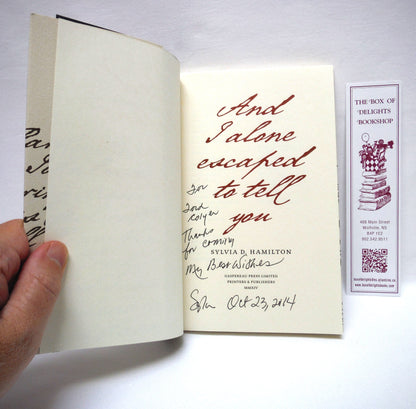 And
I alone
escaped
to tell
you
For
Thanks
for coming
SYLVIA D. HAMILTON
My Best Wishes
GASPEREAU PRESS LIMITED
PRINTERS & PUBLISHERS
MMXIV
Oct 23, 2014
THE BOX OF
DELIGHTS
BOOKSHOP
466 Main Street
Wolfville, NS
B4P 1E2
902.542.9511